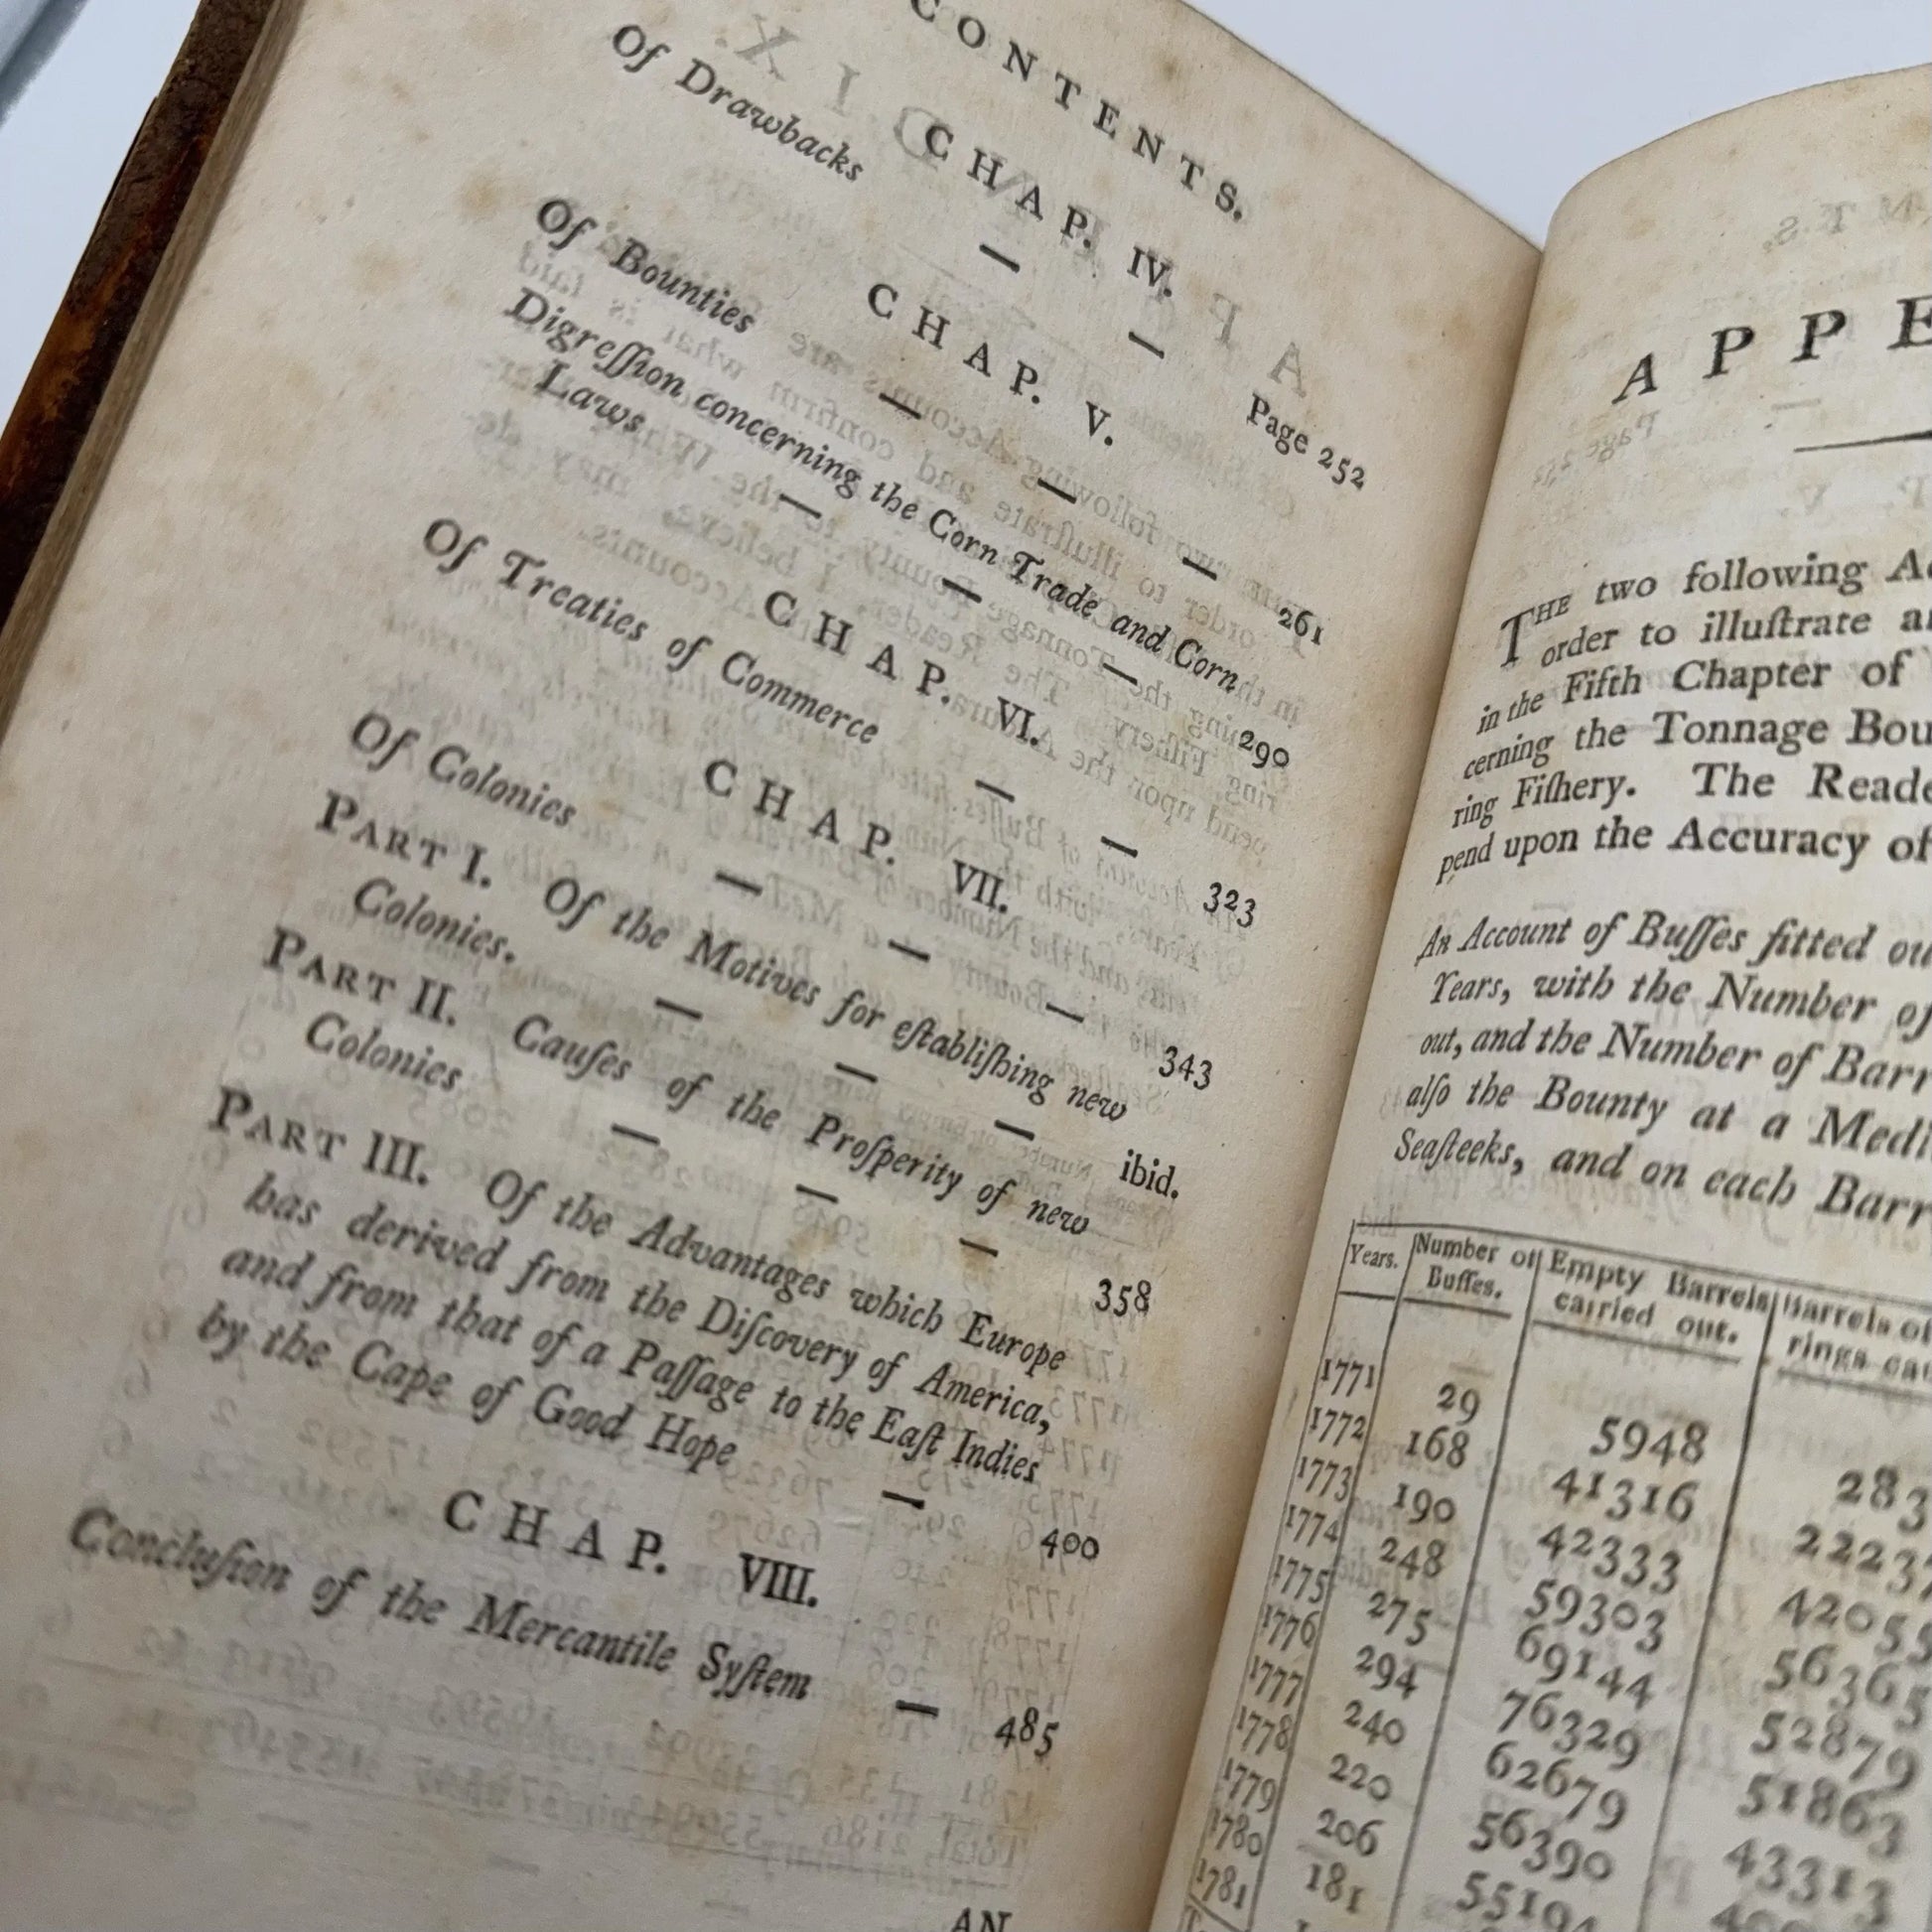 CONTENTS.
CHAP. IV.
Of Drawbacks — — Page 252
CHAP. V.
Of Bounties — — — 261
Digreſſion concerning the Corn Trade and Corn
Laws — — — 290
CHAP. VI.
Of Treaties of Commerce — — 323
CHAP. VII.
Of Colonies — — — 343
PART I. Of the Motives for eſtabliſhing new
Colonies. — — — ibid.
PART II. Cauſes of the Proſperity of new
Colonies — — — 358
PART III. Of the Advantages which Europe
has derived from the Diſcovery of America,
and from that of a Paſſage to the Eaſt Indies
by the Cape of Good Hope — 400
CHAP. VIII.
Concluſion of the Mercantile Syſtem — 485
AN
APPE
THE two following Ac
order to illuſtrate an
in the Fifth Chapter of
cerning the Tonnage Bou
ring Fiſhery. The Reade
pend upon the Accuracy of
An Account of Buſſes fitted ou
Years, with the Number of
out, and the Number of Barr
alſo the Bounty at a Medi
Seaſteeks, and on each Barr
Years. Number of Empty Barrels Barrels of
Buſſes. carried out. rings ca
1771 29 5948 283
1772 168 41316 2223
1773 190 42333 42055
1774 248 59303 56365
1775 275 69144 52879
1776 294 76329 51863
1777 240 62679 43313
1778 220 56390
1779 206 55194
1780 181
1781